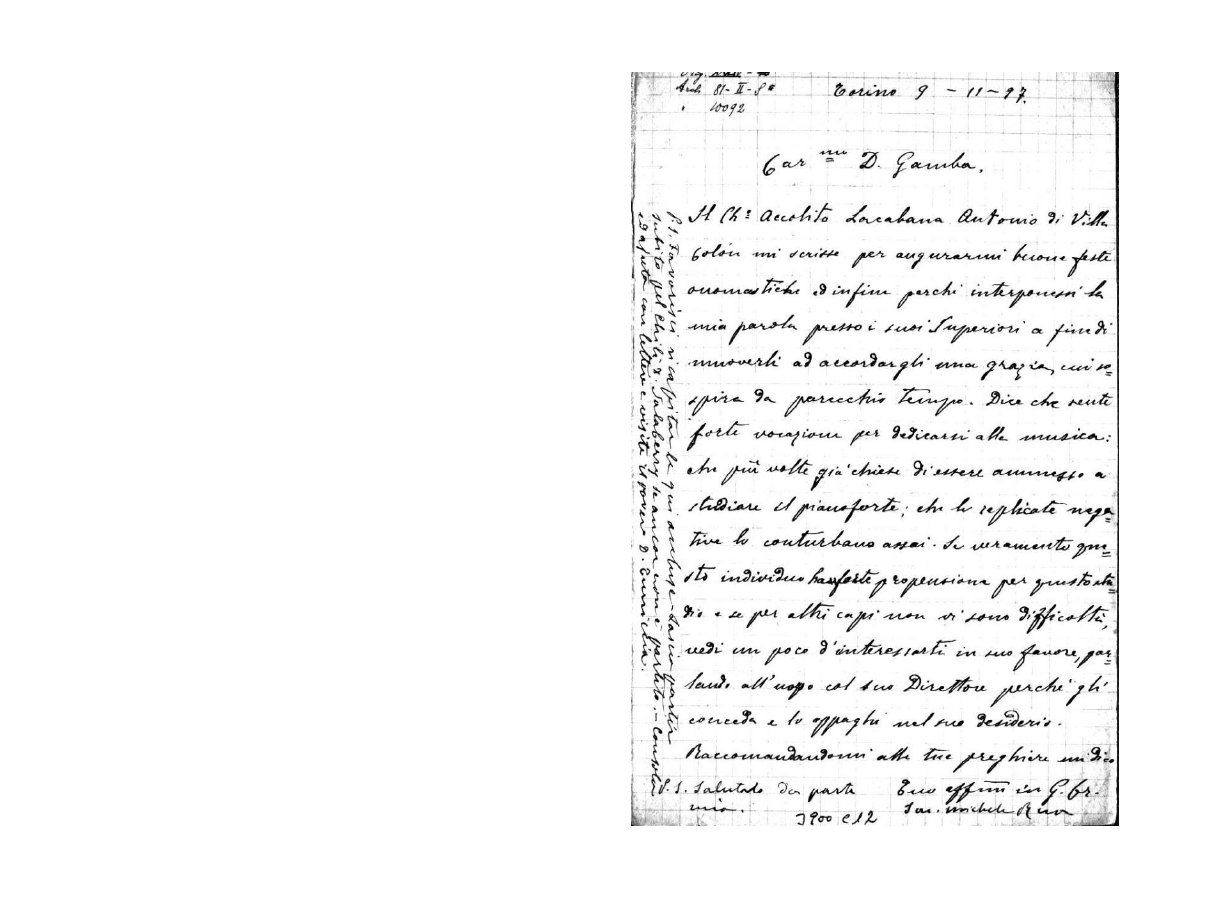 Orig.
Arch 81-II-8
" 10092
Torino 9 - 11 - 97.
Car mo D. Gamba,
Il Ch.o Accolito Lacabana Antonio di Villa
Colón mi scrisse per augurarmi buone feste
onomastiche ed infine perchè interponessi la
mia parola presso i suoi Superiori a fine di
muoverli ad accordargli una grazia, cui so=
spira da parecchio tempo. Dice che sente
forte vocazione per dedicarsi alla musica:
che più volte già chiese di essere ammesso a
studiare il pianoforte; che le replicate nega=
tive lo conturbano assai. Se veramente que=
sto individuo ha forte propensione per questo stu=
dio e se per altri capi non vi sono difficoltà,
vedi un poco d'interessarti in suo favore, par=
lando all'uopo col suo Direttore perchè gli
conceda e lo appaghi nel suo desiderio.
Raccomandandomi alle tue preghiere mi dico
Tuo affmo in G. Cr.
Sac. Michele Rua
P.S. Salutalo da parte
mia.
3900 C12
P.S. Favorisci ricapitar le qui accluse. Lascia partir
subito pel Chilì D. Salaberry se ancor non è partito. - Consola
ed aiuta con lettere e visite il povero D.